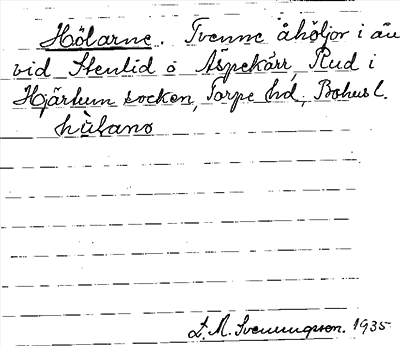 Hölarne. Tvenne åhöljor i ån
vid Stenlid o Äspekärr, Rud i
Hjärtum socken, Torpe hd, Bohusl.
hùlano
L. M. Svenungsson. 1935